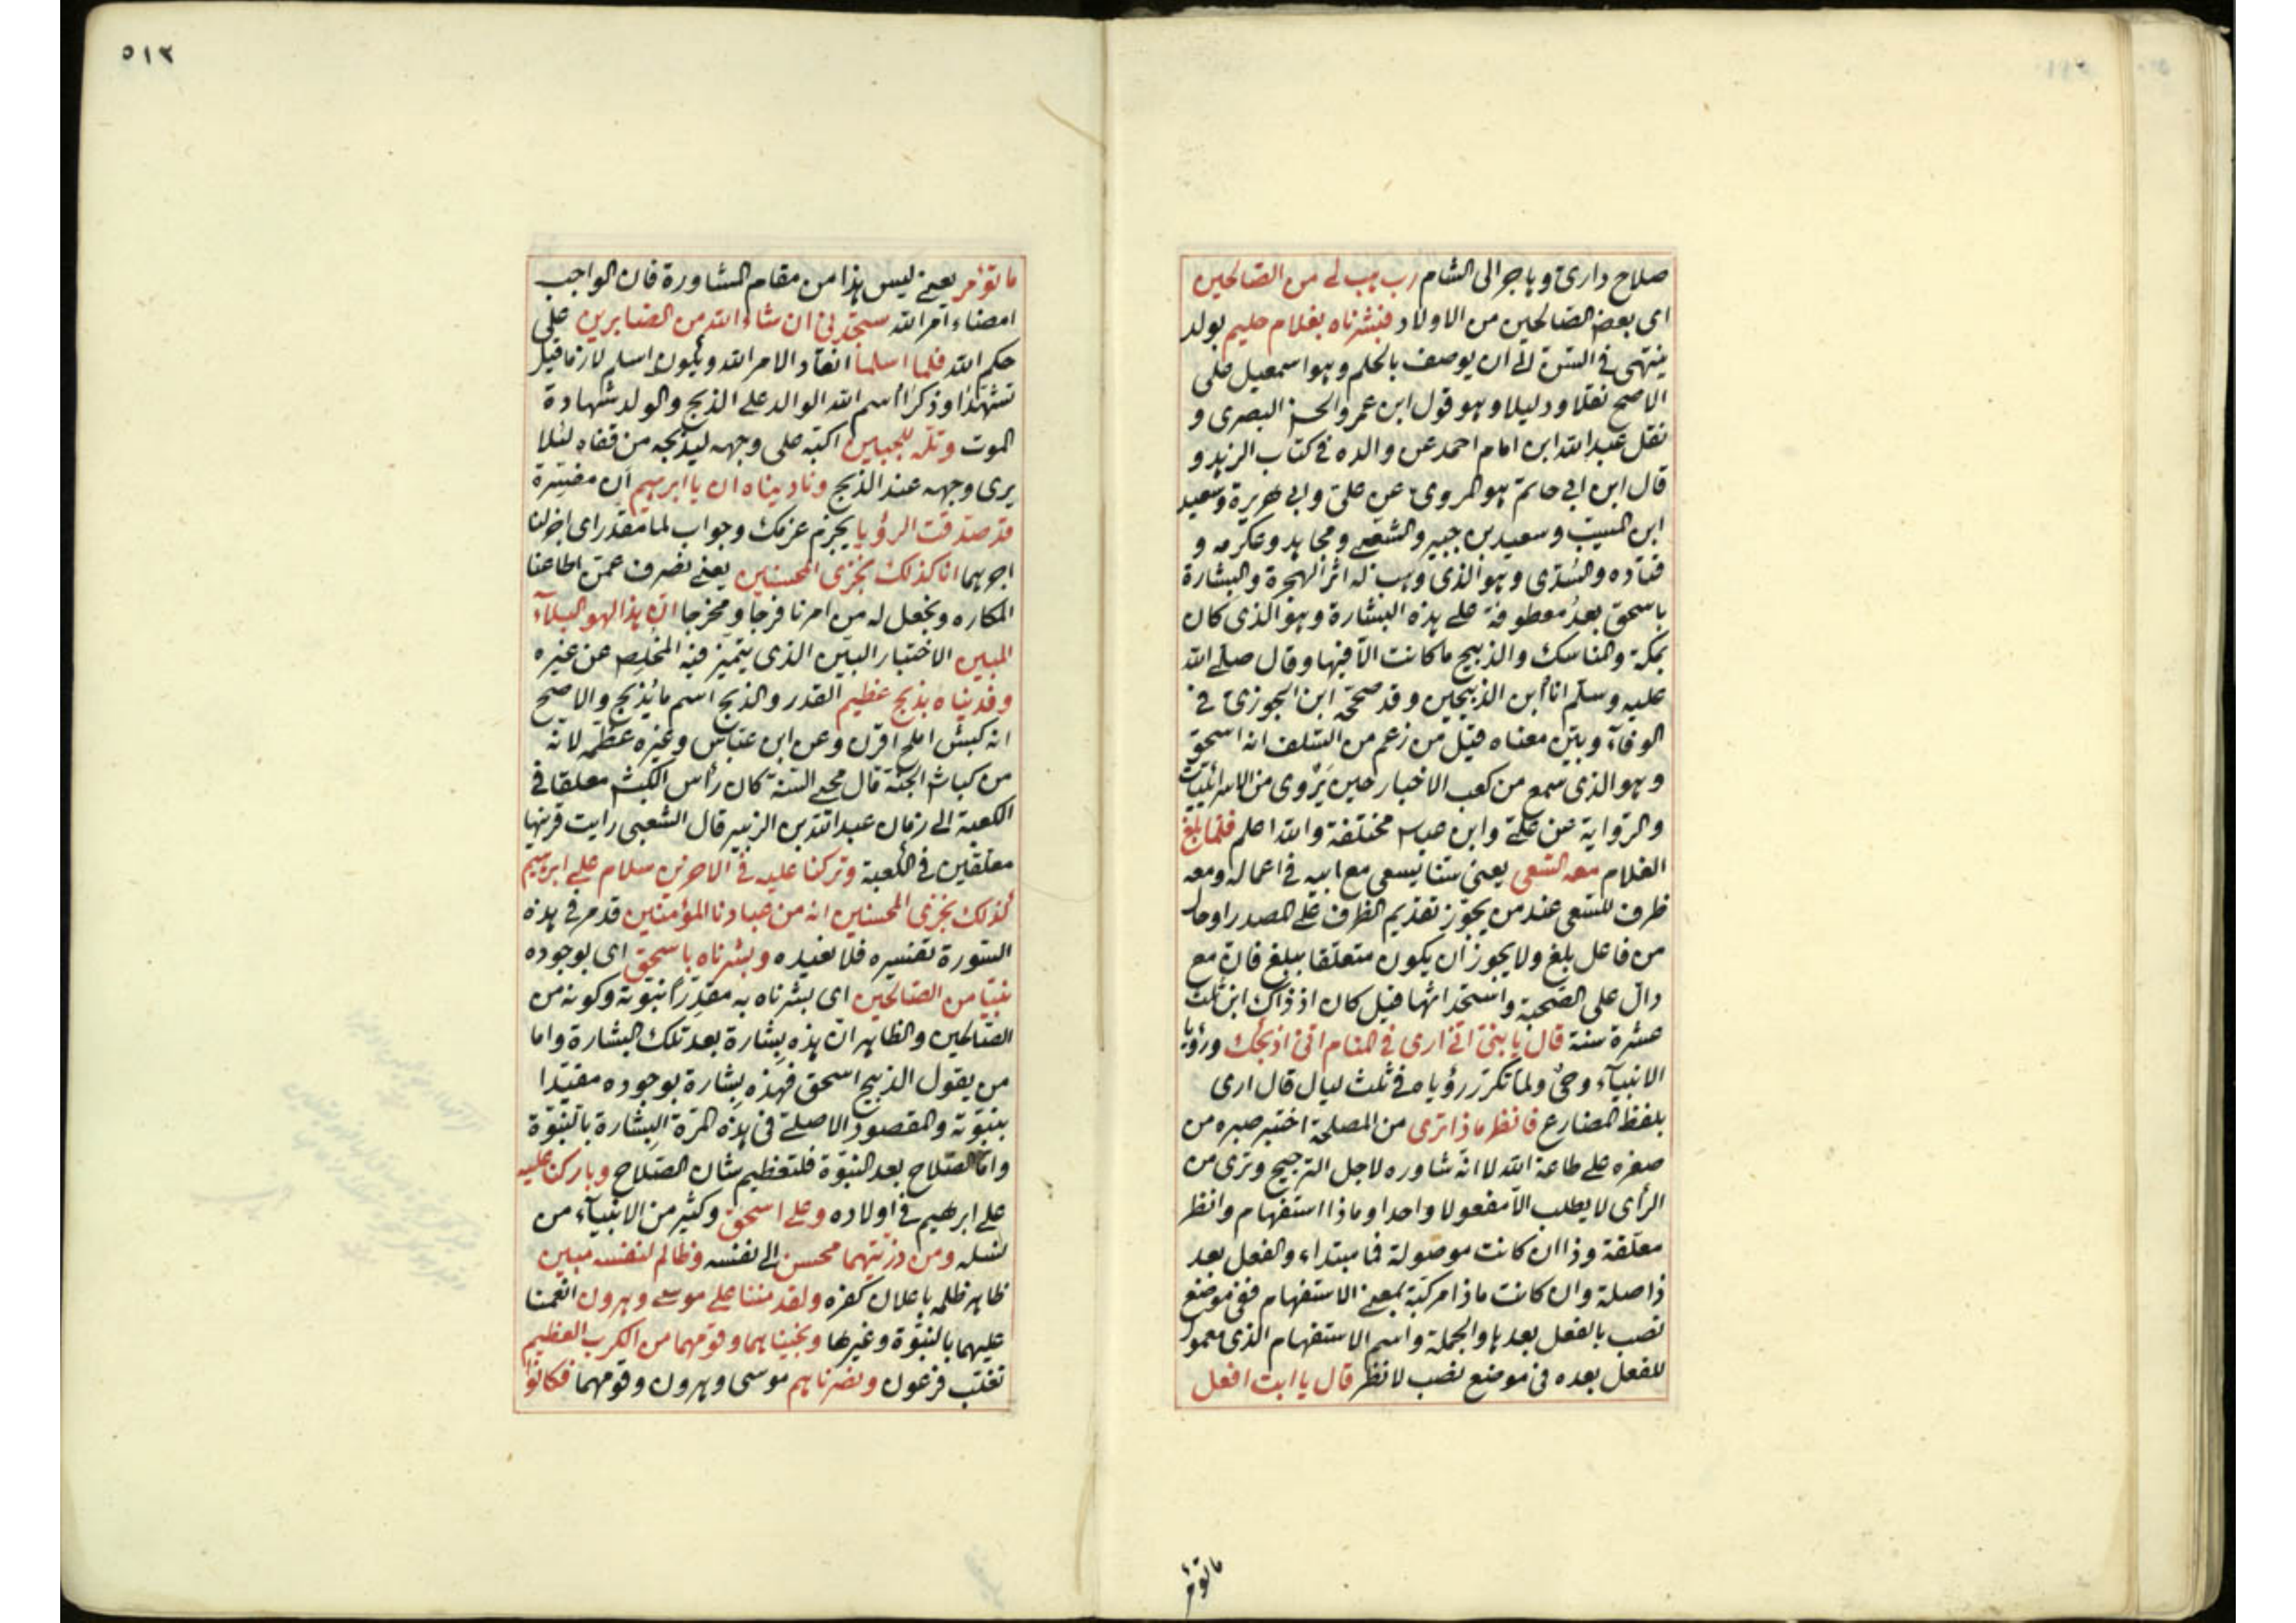 صلاح دارى و هاجر الى الشام رب هب لى من الصالحين
اى بعض الصالحين من الاولاد فبشرناه بغلام حليم بولد
ينتهى فى السن الى ان يوصف بالحلم وهو اسمعيل على
الاصح نقلا ودليلا وهو قول ابن عمر والحسن البصرى و
نقل عبد الله ابن امام احمد عن والده فى كتاب الزهد و
قال ابن ابى حاتم هو المروى عن على وابى هريرة وسعيد
ابن المسيب وسعيد بن جبير والشعبى ومجاهد وعكرمه و
قتاده والسدى وهو الذى وهب له اثر الهجرة والبشارة
باسحق بعد معطوفة على هذه البشارة وهو الذى كان
بمكة والمناسك والذبيح ما كانت الا فيها وقال صلى الله
عليه وسلم انا ابن الذبيحين وقد صححه ابن الجوزى فى
الوفاء وبين معناه قيل من زعم من السلف انه اسحق
وهو الذى سمع من كعب الاخبار حين يروى من الاسرائيليات
والرواية عن على وابن عباس مختلفة والله اعلم فلما بلغ
الغلام معه السعى يعنى سنا يسعى مع ابيه فى اعماله ومعه
ظرف للسعى عند من يجوز تقديم الظرف على المصدر او حال
من فاعل بلغ ولا يجوز ان يكون متعلقا ببلغ فان مع
دال على الصحبة واستحداثها قيل كان اذ ذاك ابن ثلث
عشرة سنة قال يا بنى انى ارى فى المنام انى اذبحك ورؤيا
الانبياء وحى ولما تكرر رؤياه فى ثلث ليال قال ارى
بلفظ المضارع فانظر ماذا ترى من المصلحة اختبر صبره من
صغره على طاعة الله لا انه شاوره لاجل الترجيح وترى من
الرأى لا يطلب الا مفعولا واحدا وماذا استفهام وانظر
معلقة وذا ان كانت موصولة فما مبتداء والفعل بعد
ذا صلة وان كانت ماذا مركبة بمعنى الاستفهام ففى موضع
نصب بالفعل بعدها والجملة واسم الاستفهام الذى معمول
للفعل بعده فى موضع نصب لانظر قال يا ابت افعل
ما تؤمر
٥١٢
ما تؤمر يعنى ليس هذا من مقام المشاورة فان الواجب
امضاء امر الله ستجدنى ان شاء الله من الصابرين على
حكم الله فلما اسلما انقادا لامر الله ويكون اسلم لازما قيل
تشهدا وذكرا اسم الله الوالد على الذبح والولد شهادة
الموت وتله للجبين اكبه على وجهه ليذبحه من قفاه لئلا
يرى وجهه عند الذبح وناديناه ان يا ابرهيم ان مفسرة
قد صدقت الرؤيا بجزم عزمك وجواب لما مقدر اى اجزلنا
اجرهما انا كذلك نجزى المحسنين يعنى نصرف عمن اطاعنا
المكاره ونجعل له من امرنا فرجا ومخرجا ان هذا لهو البلاء
المبين الاختبار البين الذى يتميز فيه المخلص عن غيره
وفديناه بذبح عظيم القدر والذبح اسم ما يذبح والاصح
انه كبش املح اقرن وعن ابن عباس وغيره عظمه لانه
من كباش الجنة قال محيى السنة كان رأس الكبش معلقا فى
الكعبة الى زمان عبد الله بن الزبير قال الشعبى رايت قرنيها
معلقين فى الكعبة وتركنا عليه فى الاخرين سلام على ابرهيم
كذلك نجزى المحسنين انه من عبادنا المؤمنين قد مر فى هذه
السورة تفسيره فلا نعيده وبشرناه باسحق اى بوجوده
نبيا من الصالحين اى بشرناه به مقدرا نبوته وكونه من
الصالحين والظاهر ان هذه بشارة بعد تلك البشارة واما
من يقول الذبيح اسحق فهذه بشارة بوجوده مقيدا
بنبوته والمقصود الاصلى فى هذه المرة البشارة بالنبوة
واما الصلاح بعد النبوة فلتعظيم شان الصلاح وباركنا عليه
على ابرهيم فى اولاده وعلى اسحق وكثير من الانبياء من
نسله ومن ذريتهما محسن الى نفسه وظالم لنفسه مبين
ظاهر ظلمه باعلان كفره ولقد مننا على موسى وهرون انعمنا
عليهما بالنبوة وغيرها ونجيناهما وقومهما من الكرب العظيم
تغلب فرعون ونصرناهم موسى وهرون وقومهما فكانوا